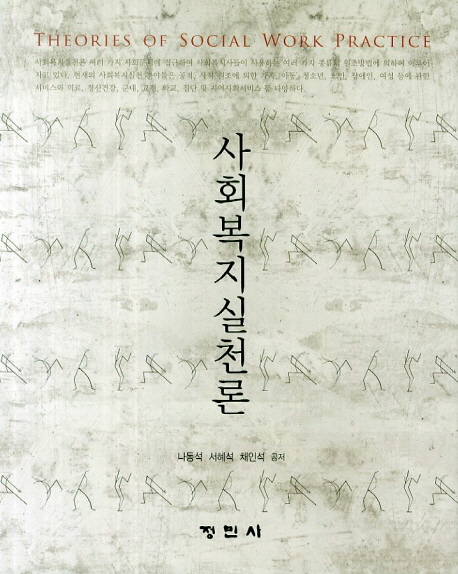 THEORIES OF SOCIAL WORK PRACTICE
사회복지실천은 여러 가지 사회문제에 접근하여 사회복지사들이 사용하는 여러 가지 종류의 원조방법에 의하여 이루어
지고 있다. 현재의 사회복지실천 분야들은 공적, 사적 원조에 의한 가족, 아동, 청소년, 노인, 장애인, 여성 등에 관한
서비스와 의료, 정신건강, 군대, 교정, 학교, 집단 및 지역사회서비스 등 다양하다.
사회복지실천론
나동석 서혜석 채인석 공저
정민사